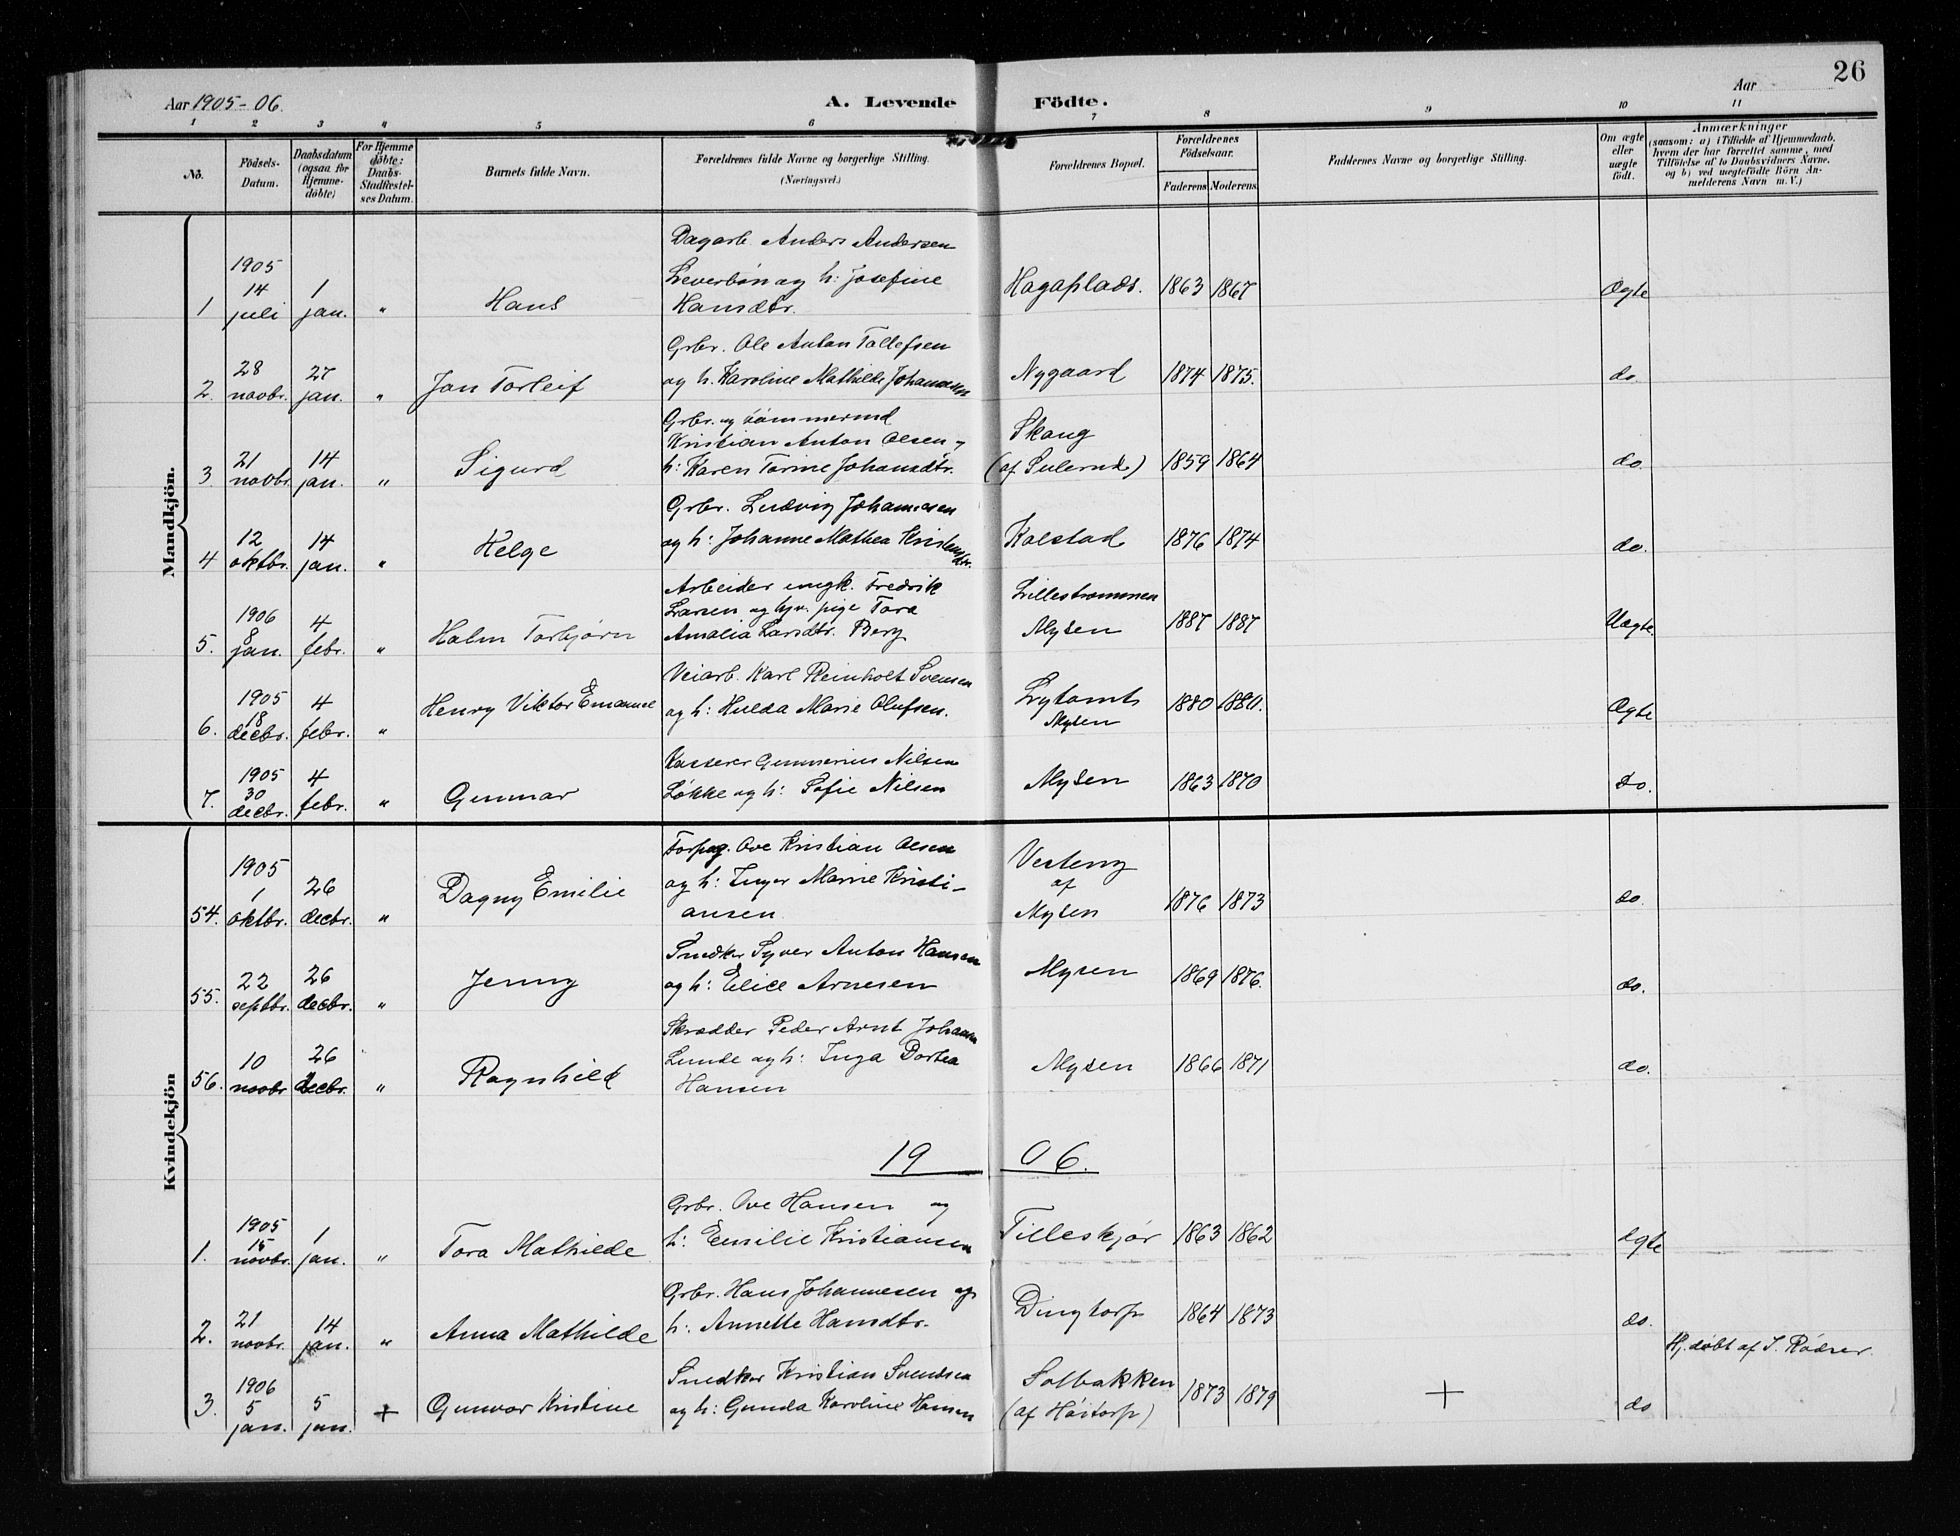 26
Aar 1905-06.
A. Levende Födte.
Aar
1 2 3 4 5 6 7 8 9 10 11
No.
Födsels-Datum.
Daabsdatum (ogsaa for Hjemmedøbte)
For Hjemmedøbte: Daabs-Stadfæstelses Datum.
Barnets fulde Navn.
Forældrenes fulde Navne og borgerlige Stilling.
(Næringsvei.)
Forældrenes Bopæl.
Forældrenes Födselsaar.
Faderens Moderens
Faddernes Navne og borgerlige Stilling.
Om ægte eller uægte födt.
Anmærkninger
(saasom: a) i Tilfælde af Hjemmedaab, hvem der har forrettet samme, med Tilföielse af to Daabsvidners Navne, og b) ved uægtefödte Börn Anmelderens Navn m. V.)
Mandkjön.
1 1905 14 juli 1 jan. " Hans Dagarb. Anders Andersen
Leverbøn og h: Josefine
Hansdtr. Hagaplads. 1863 1867 Ægte
2. 28 novbr. 27 jan. " Jan Torleif Grbr. Ole Anton Tollefsen
og h. Karoline Mathilde Johannesen Nygaard 1874 1875. do.
3. 21 novbr. 14 jan. " Sigurd Grbr. og tømmermd
Kristian Anton Olsen,
h: Karen Torine Johansdtr. Skaug
(af Sulerud) 1859 1864 do.
4 12 oktbr. 14 jan. " Helge Grbr. Ludvig Johannesen
og h: Johanne Mathea Kristensdtr. Kolstad 1876 1874 do.
5. 1906 8 jan. 4 febr. " Holm Torbjørn Arbeider ungk. Fredrik
Larsen og tjv. pige Tora
Amalia Larsdtr. Berg Lillestrømmen
Mysen 1887 1887 Uægte.
6. 1905 18 decbr. 4 febr. " Henry Viktor Emanuel Veiarb. Karl Reinholt Svensen
og h: Hulda Marie Olufsen. Lytomt
Mysen 1880 1880. Ægte
7. 1905 30 decbr. 4 febr. " Gunnar Kasserer Gunnerius Nilsen
Løkke og h: Sofie Nilsen Mysen 1863 1870 do.
Kvindekjön
54. 1905 1 oktbr. 26 decbr. " Dagny Emilie Forpag. Ove Kristian Olsen
og h: Inger Marie Kristi-
ansen Vesteng
af
Mysen 1876 1873 do.
55. 22 septbr. 26 decbr. " Jenny Snedker Syver Anton Hansen
og h: Elise Arnesen Mysen 1869 1876. do.
56. 10 novbr 26 decbr. " Ragnhild Skrædder Peder Arnt Johansen
Lunde og h: Inga Dortea
Hansen Mysen 1866 1871 do.
19 06.
1. 1905 15 novbr. 1 jan. " Tora Mathilde Grbr. Ove Hansen og
h: Emilie Kristiansen Tilleskjør 1863 1862 Ægte
2. 21 novbr. 14 jan. " Anna Mathilde Grbr. Hans Johannesen og
h: Annette Hansdtr. Dingtorp 1864 1873 do.
3. 1906 5 jan. 5 jan. + Gunvor Kristine Snedker Kristian Svendsen
og h: Gunda Karoline Hansen Solbakken
(af Høitorp) 1873 1879 + do Hj. døbt af I. Rødser.